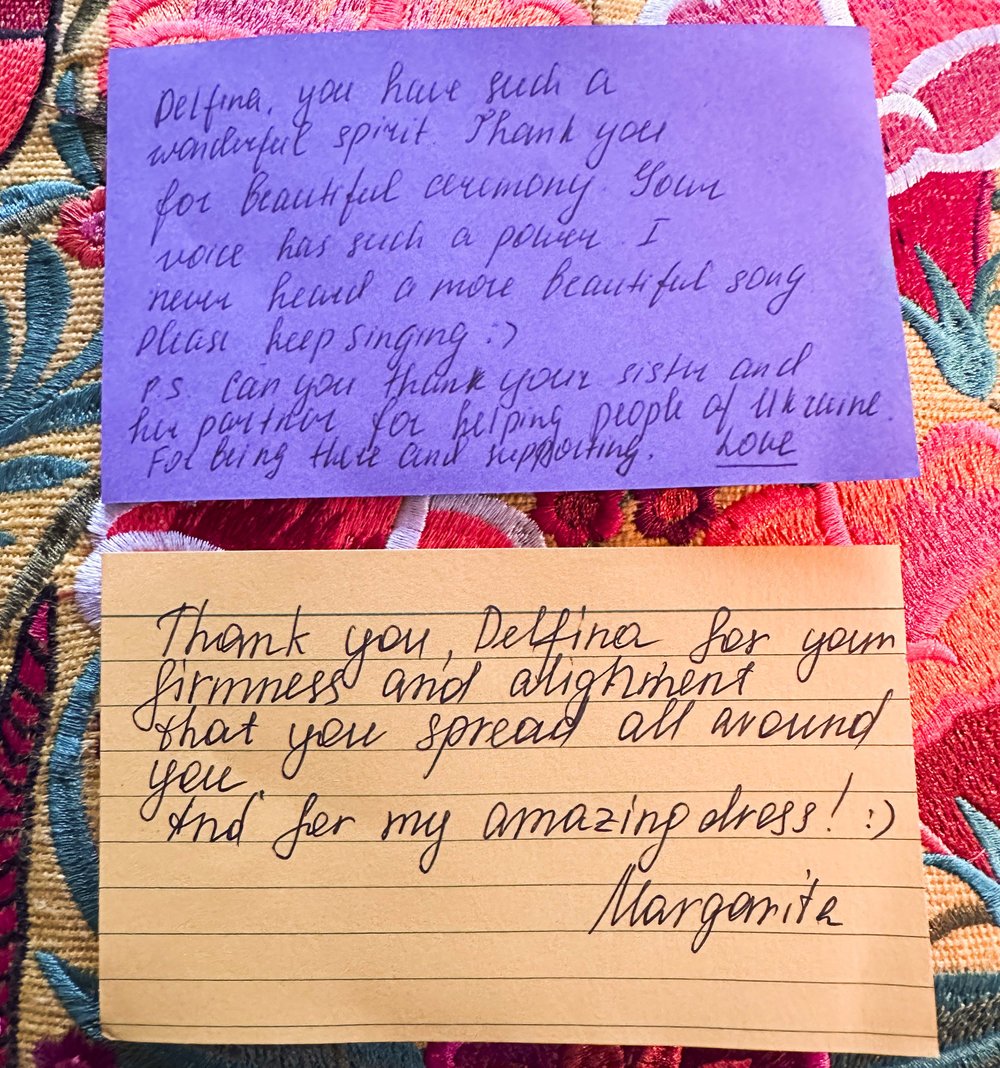 Delfina, you have such a
wonderful spirit. Thank you
for beautiful ceremony. Your
voice has such a power. I
never heard a more beautiful song.
please keep singing :)
P.S. Can you thank your sister and
her partner for helping people of Ukraine.
For being there and supporting. Love
Thank you, Delfina for your
firmness and alighment
that you spread all around
you.
And for my amazing dress! :)
Margarita